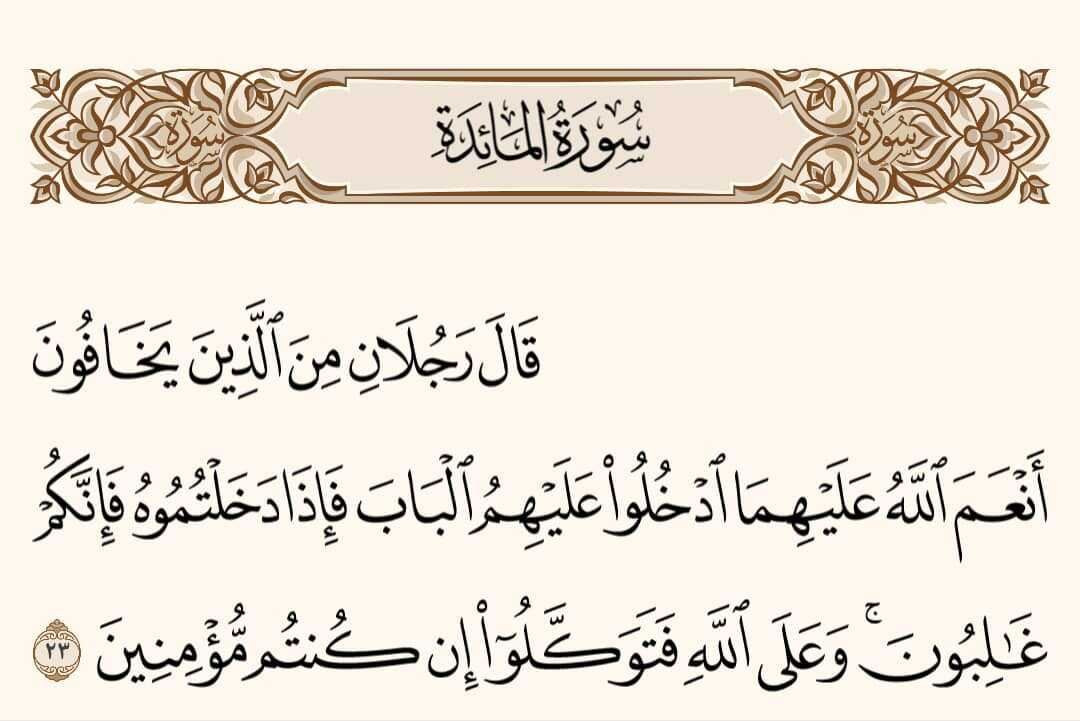 سُورَةُ المَائِدَةِ
سُورَة
سُورَة
قَالَ رَجُلَانِ مِنَ ٱلَّذِينَ يَخَافُونَ
أَنۡعَمَ ٱللَّهُ عَلَيۡهِمَا ٱدۡخُلُواْ عَلَيۡهِمُ ٱلۡبَابَ فَإِذَا دَخَلۡتُمُوهُ فَإِنَّكُمۡ
غَٰلِبُونَۚ وَعَلَى ٱللَّهِ فَتَوَكَّلُوٓاْ إِن كُنتُم مُّؤۡمِنِينَ ٢٣